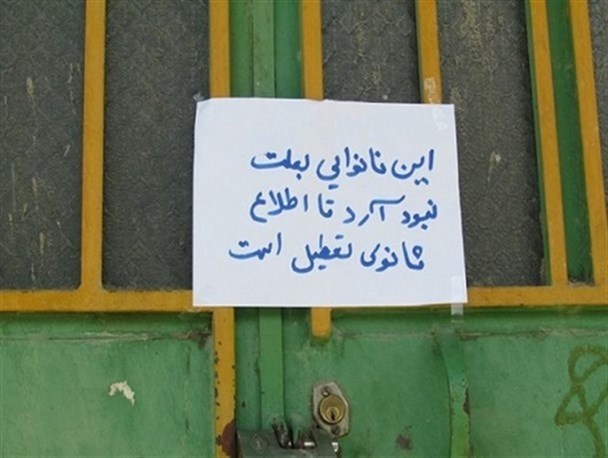 این نانوایی بعلت
نبود آرد تا اطلاع
ثانوی تعطیل است